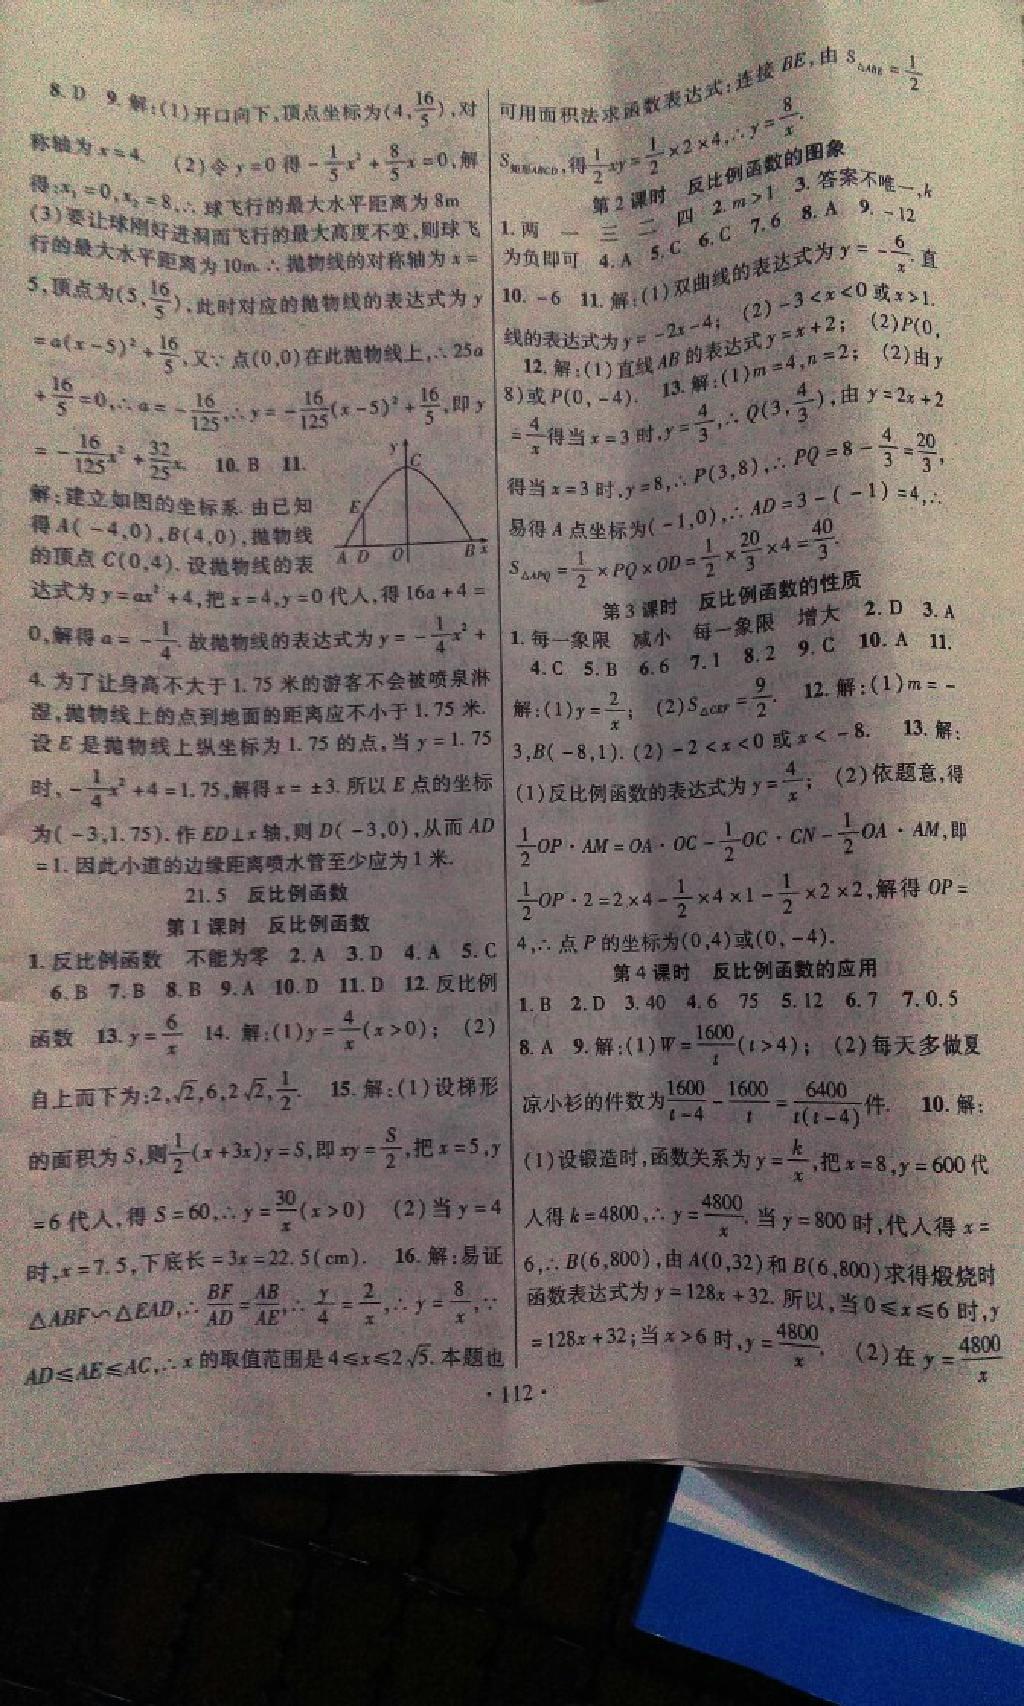 8. D 9. 解:(1)开口向下,顶点坐标为(4,16/5),对
称轴为x=4. (2)令y=0得-1/5x²+8/5x=0,解
得:x₁=0,x₂=8,∴球飞行的最大水平距离为8m
(3)要让球刚好进洞而飞行的最大高度不变,则球飞
行的最大水平距离为10m.∴抛物线的对称轴为x=
5,顶点为(5,16/5),此时对应的抛物线的表达式为y
=a(x-5)²+16/5,又∵点(0,0)在此抛物线上,∴25a
+16/5=0,∴a=-16/125,∴y=-16/125(x-5)²+16/5,即y
=-16/125x²+32/25x. 10. B 11.
解:建立如图的坐标系.由已知
得A(-4,0),B(4,0),抛物线
的顶点C(0,4).设抛物线的表
y C E A D O B x
达式为y=ax²+4,把x=4,y=0代人,得16a+4=
0,解得a=-1/4.故抛物线的表达式为y=-1/4x²+
4.为了让身高不大于1.75米的游客不会被喷泉淋
湿,抛物线上的点到地面的距离应不小于1.75米.
设E是抛物线上纵坐标为1.75的点,当y=1.75
时,-1/4x²+4=1.75,解得x=±3.所以E点的坐标
为(-3,1.75).作ED⊥x轴,则D(-3,0),从而AD
=1.因此小道的边缘距离喷水管至少应为1米.
21.5 反比例函数
第1课时 反比例函数
1. 反比例函数 不能为零 2. A 3. D 4. A 5. C
6. B 7. B 8. B 9. A 10. D 11. D 12. 反比例
函数 13. y=6/x 14. 解:(1)y=4/x(x>0); (2)
自上而下为:2,√2,6,2√2,1/2. 15. 解:(1)设梯形
的面积为S,则1/2(x+3x)y=S,即xy=S/2,把x=5,y
=6代人,得S=60,∴y=30/x(x>0) (2)当y=4
时,x=7.5,下底长=3x=22.5(cm). 16. 解:易证
△ABF∽△EAD,∴BF/AD=AB/AE,∴y/4=2/x,∴y=8/x,∵
AD≤AE≤AC,∴x的取值范围是4≤x≤2√5.本题也
可用面积法求函数表达式:连接BE,由S△ABE=1/2
S矩形ABCD,得1/2xy=1/2×2×4,∴y=8/x.
第2课时 反比例函数的图象
1. 两 一 三 二 四 2. m>1 3. 答案不唯一,k
为负即可 4. A 5. C 6. C 7. 6 8. A 9. -12
10. -6 11. 解:(1)双曲线的表达式为y=-6/x.直
线的表达式为y=-2x-4; (2)-3<x<0或x>1.
12. 解:(1)直线AB的表达式y=x+2; (2)P(0,
8)或P(0,-4). 13. 解:(1)m=4,n=2; (2)由y
=4/x得当x=3时,y=4/3,∴Q(3,4/3),由y=2x+2
得当x=3时,y=8,∴P(3,8),∴PQ=8-4/3=20/3,
易得A点坐标为(-1,0),∴AD=3-(-1)=4,∴
S△APQ=1/2×PQ×OD=1/2×20/3×4=40/3.
第3课时 反比例函数的性质
1. 每一象限 减小 每一象限 增大 2. D 3. A
4. C 5. B 6. 6 7. 1 8. 2 9. C 10. A 11.
解:(1)y=2/x; (2)S△CEF=9/2. 12. 解:(1)m=-
3,B(-8,1).(2)-2<x<0或x<-8. 13. 解:
(1)反比例函数的表达式为y=4/x; (2)依题意,得
1/2OP·AM=OA·OC-1/2OC·CN-1/2OA·AM,即
1/2OP·2=2×4-1/2×4×1-1/2×2×2,解得OP=
4,∴点P的坐标为(0,4)或(0,-4).
第4课时 反比例函数的应用
1. B 2. D 3. 40 4. 6 75 5. 12 6. 7 7. 0.5
8. A 9. 解:(1)W=1600/t(t>4); (2)每天多做夏
凉小衫的件数为1600/(t-4)-1600/t=6400/t(t-4)件. 10. 解:
(1)设锻造时,函数关系为y=k/x,把x=8,y=600代
人得k=4800,∴y=4800/x.当y=800时,代人得x=
6,∴B(6,800),由A(0,32)和B(6,800)求得煅烧时
函数表达式为y=128x+32.所以,当0≤x≤6时,y
=128x+32;当x>6时,y=4800/x. (2)在y=4800/x
·112·